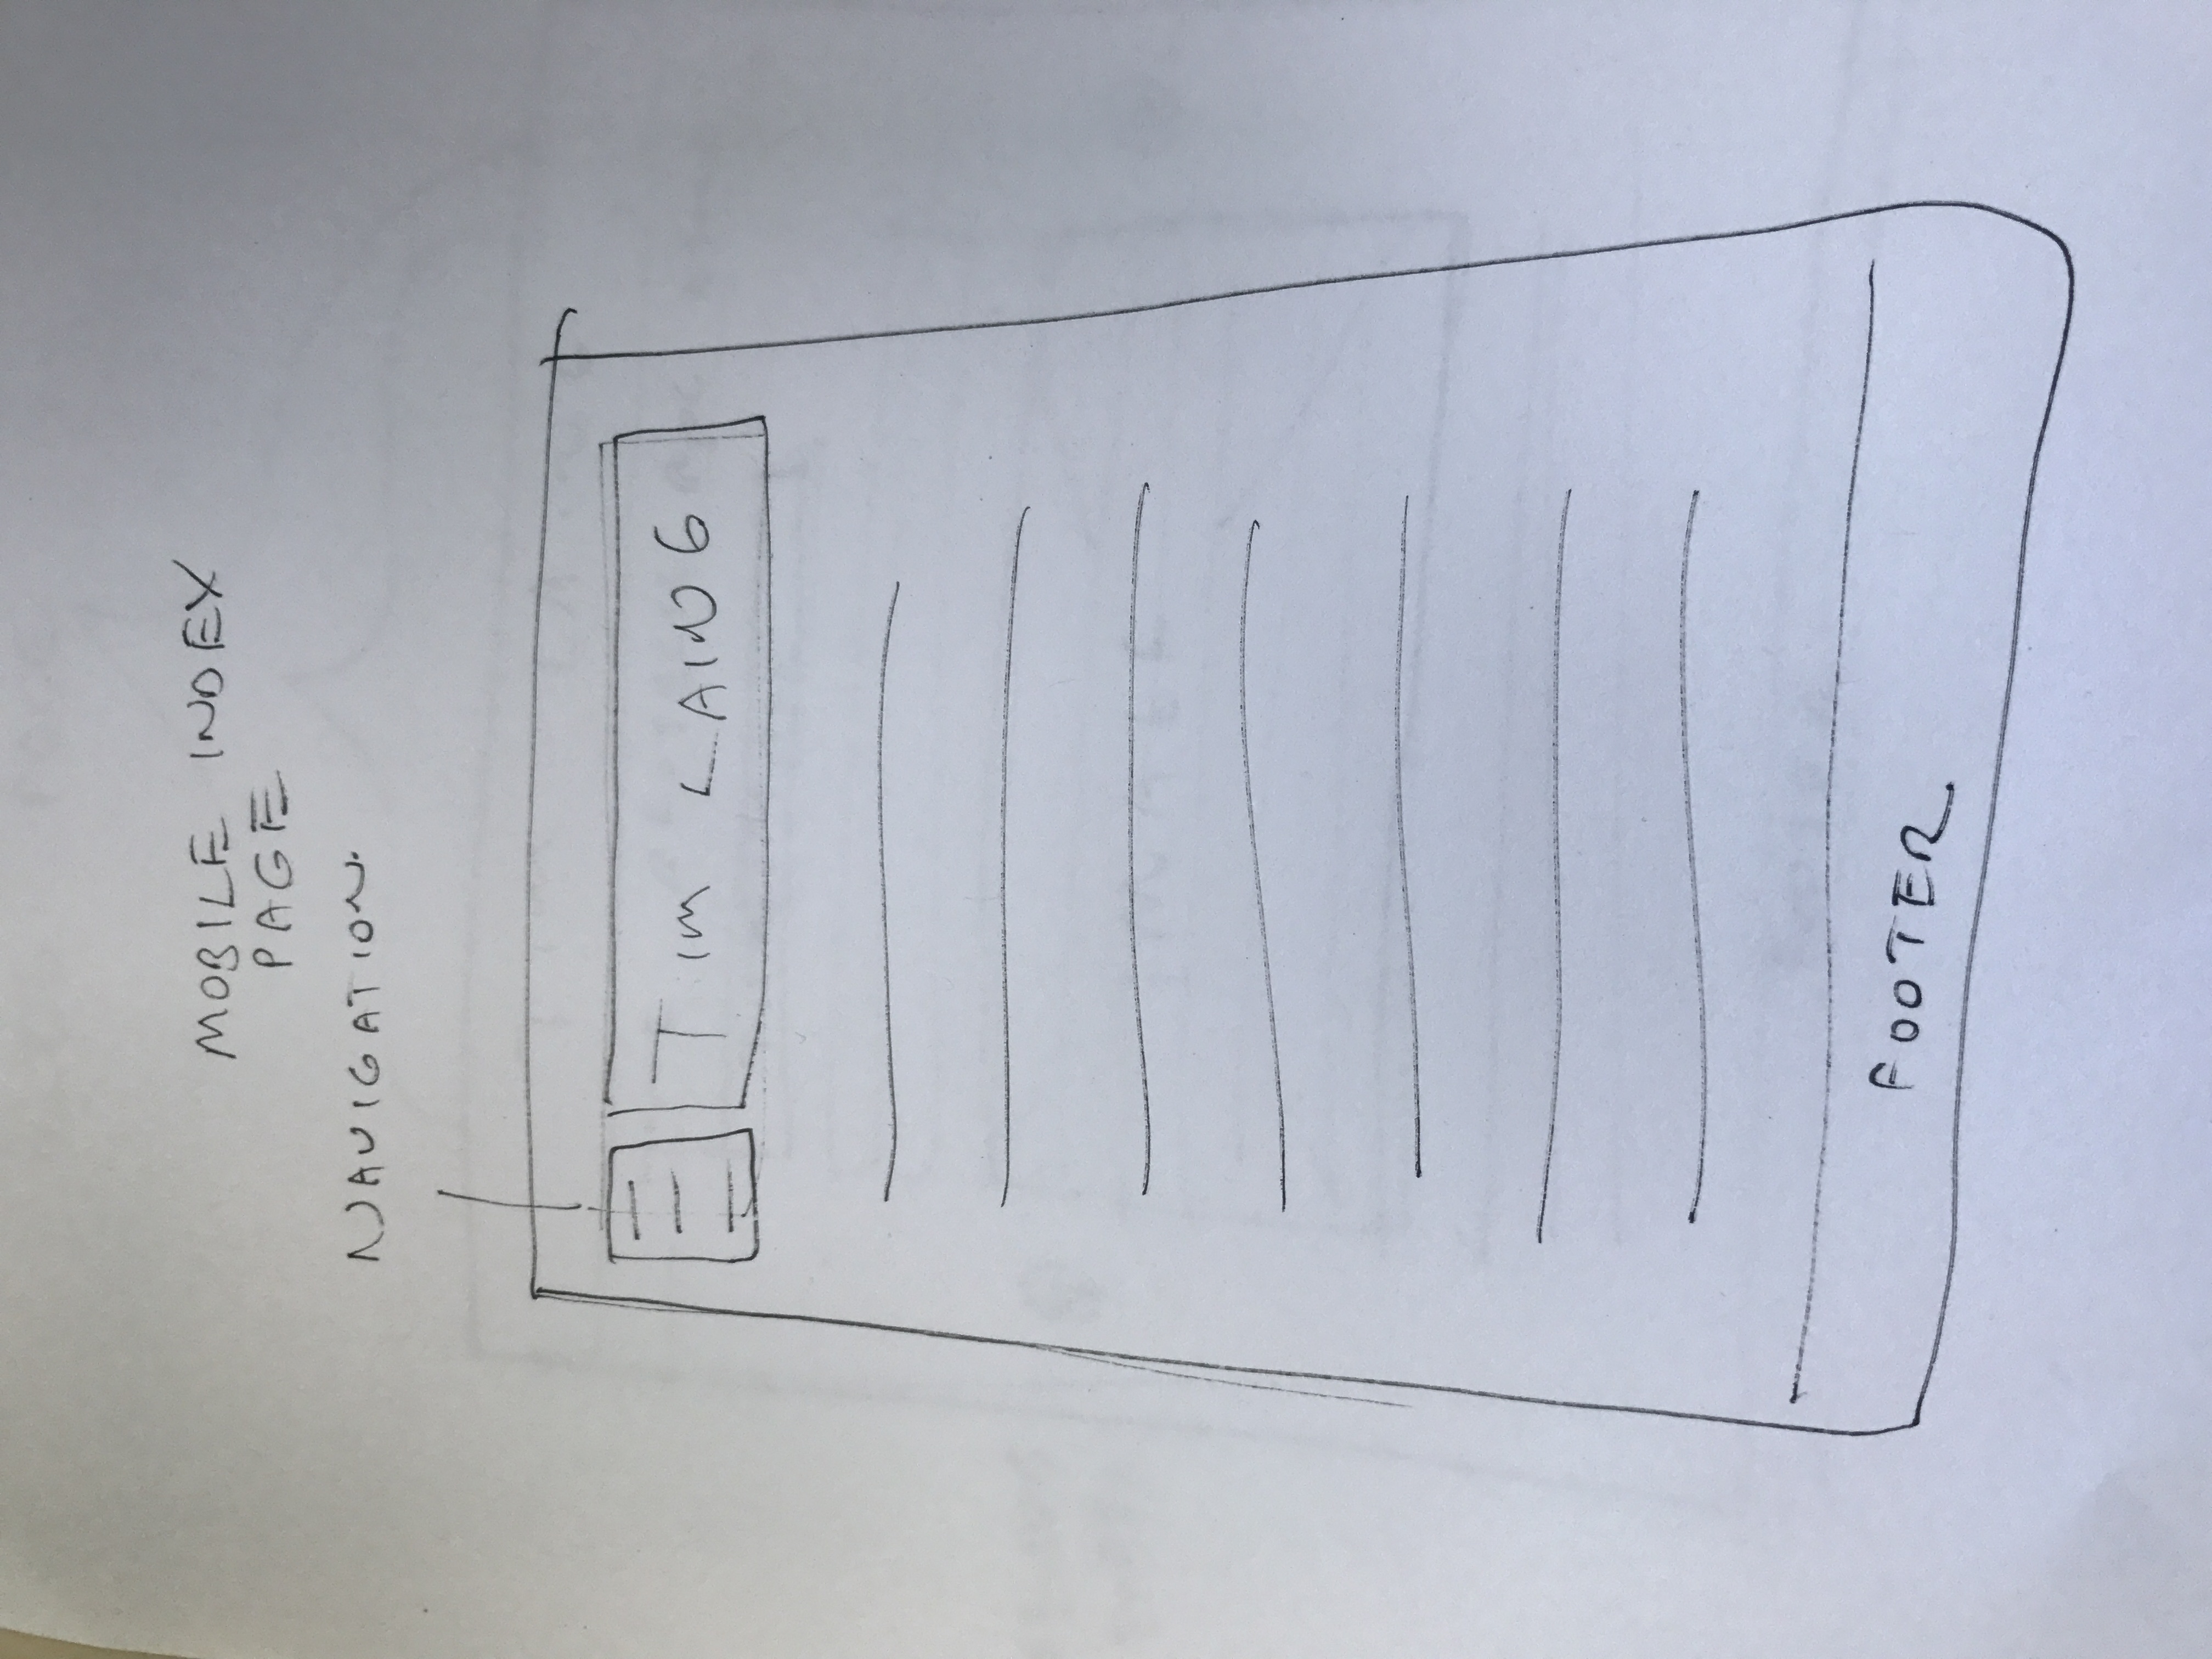 MOBILE INDEX
PAGE
NAVIGATION
TIM LAING
FOOTER